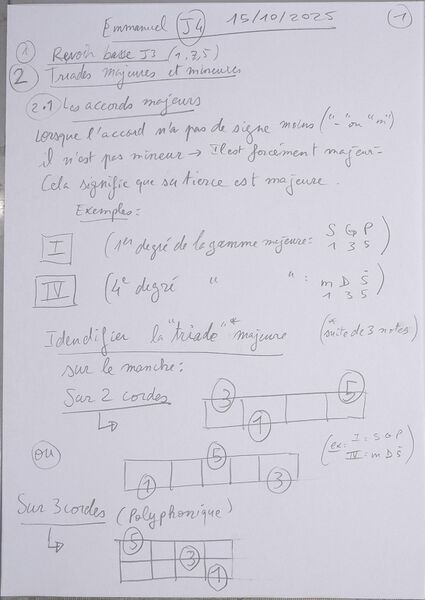 Emmanuel J4 15/10/2025 -1
1 Revoir basse J3 (1,7,5)
2 Triades majeures et mineures
2.1 Les accords majeurs
Lorsque l'accord n'a pas de signe moins ("-" ou "m")
il n'est pas mineur → Il est forcément majeur.
Cela signifie que sa tierce est majeure.
Exemples:
I (1er degré de la gamme majeure: S G P
1 3 5)
IV (4e degré " " : m D S
1 3 5)
Identifier la "triade"* majeure (* suite de 3 notes)
sur le manche:
Sur 2 cordes
3 5
1
(ex: I = S G P
IV = m D S)
ou
5
1 3
Sur 3 cordes (Polyphonique)
5
3
1